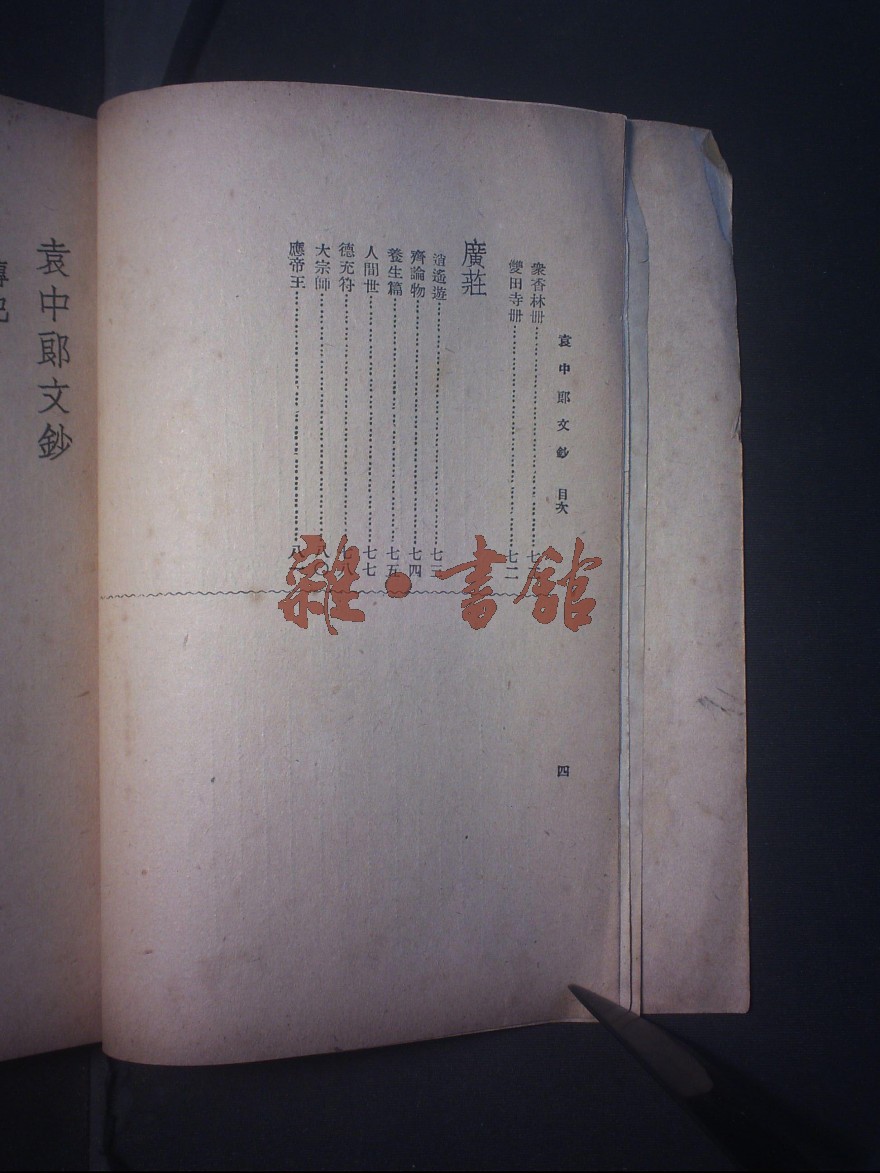 袁中郎文鈔 目次 四
衆香林冊 七
雙田寺冊 七二
廣莊
逍遙遊 七三
齊論物 七四
養生篇 七五
人間世 七七
德充符 七八
大宗師 八〇
應帝王 八
袁中郎文鈔
雜·書館